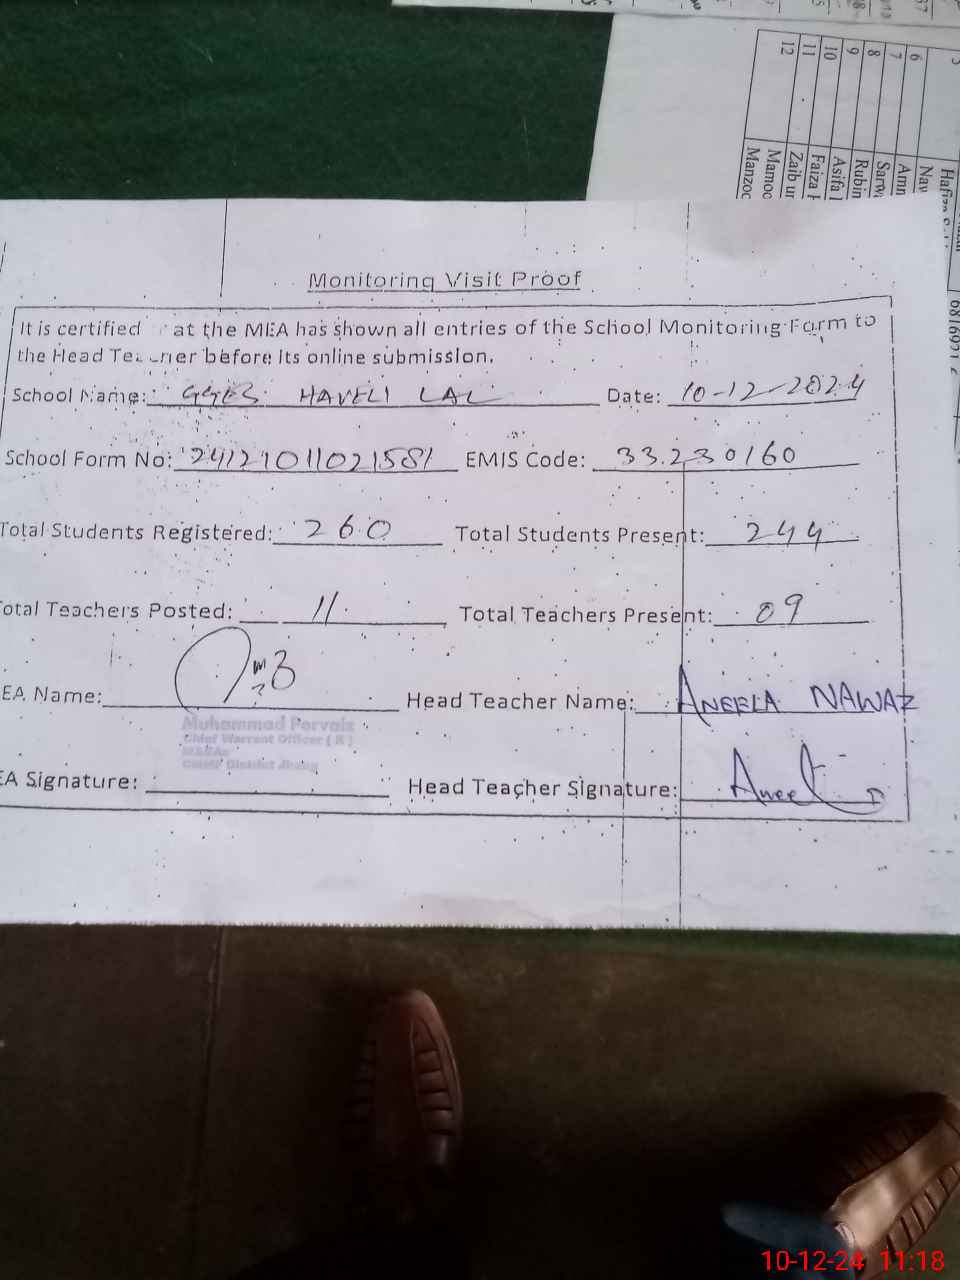 12
11
10
9
8
7
6
Manzoo
Mamoo
Zaib ur
Faiza
Asifa
Rubin
Sarw
Amn
Nav
Hafiza
Monitoring Visit Proof
It is certified at the MEA has shown all entries of the School Monitoring Form to
the Head Teacher before its online submission.
School Name: GGES HAVELI LAL Date: 10-12-2024
School Form No: 24121011021581 EMIS Code: 33230160
Total Students Registered: 260 Total Students Present: 244
Total Teachers Posted: 11 Total Teachers Present: 09
EA Name: Head Teacher Name: ANEELA NAWAZ
Muhammad Pervaiz
Chief Warrant Officer ( R )
MEA
District Jhang
EA Signature: Head Teacher Signature: Aneel
10-12-24 11:18